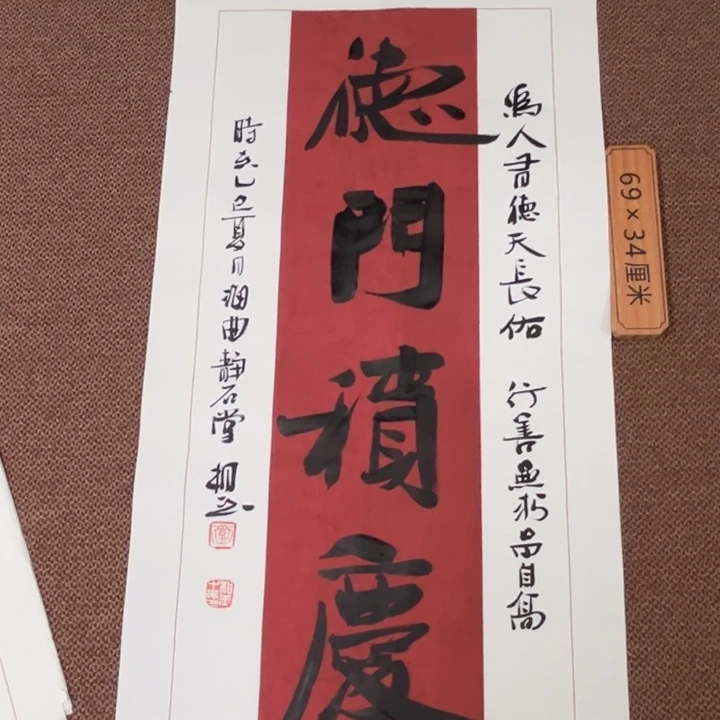 為人有德天長佑 行善無求品自高
德門積慶
時在乙巳夏月洄曲靜石堂
69×34厘米